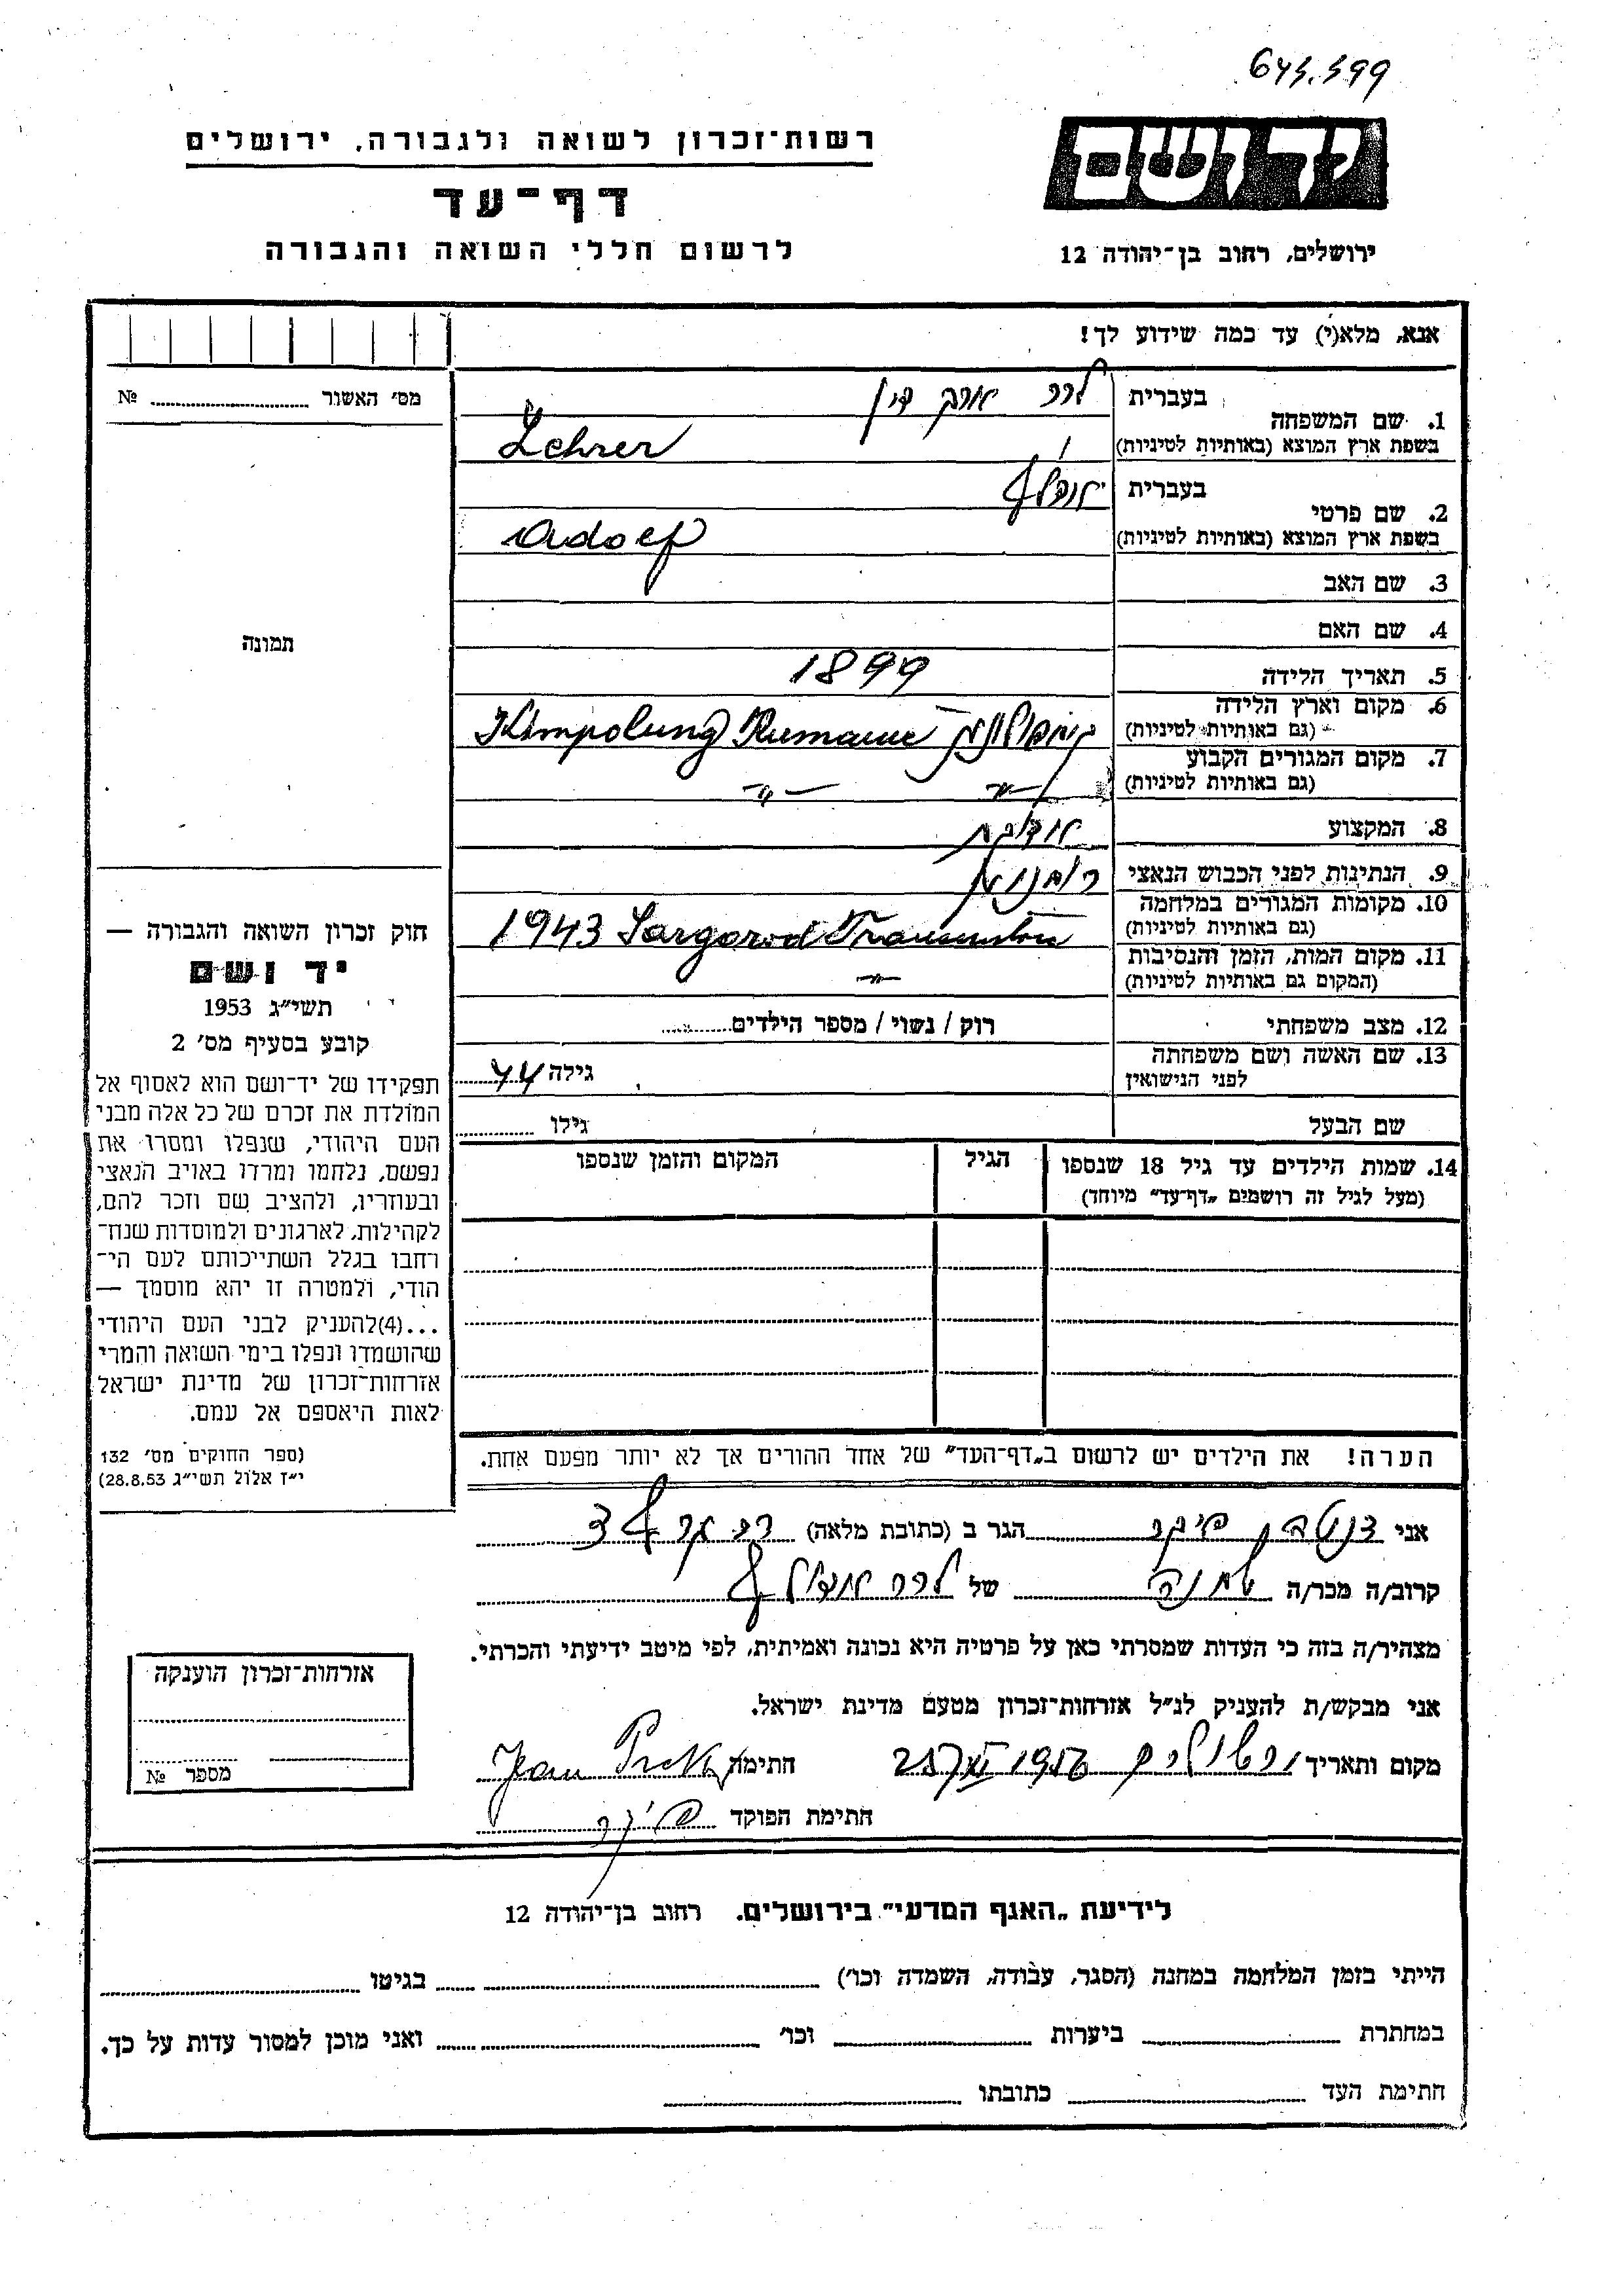 643.399
יד ושם
רשות־זכרון לשואה ולגבורה, ירושלים
דף־עד
לרשום חללי השואה והגבורה
ירושלים, רחוב בן־יהודה 12
אנא, מלא(י) עד כמה שידוע לך!
מס' האשור № ........
תמונה
1. שם המשפחה
בעברית לרר
בשפת ארץ המוצא (באותיות לטיניות) Lehrer
2. שם פרטי
בעברית אדולף
בשפת ארץ המוצא (באותיות לטיניות) Adolf
3. שם האב
4. שם האם
5. תאריך הלידה 1899
6. מקום וארץ הלידה
(גם באותיות לטיניות) קימפולונג Kimpolung Rumanie
7. מקום המגורים הקבוע
(גם באותיות לטיניות) —"— —"—
8. המקצוע
9. הנתינות לפני הכבוש הנאצי
10. מקומות המגורים במלחמה
(גם באותיות לטיניות) 1943 Sargorod
11. מקום המות, הזמן והנסיבות
(המקום גם באותיות לטיניות) —"—
12. מצב משפחתי רוק / נשוי / מספר הילדים........
13. שם האשה ושם משפחתה
לפני הנישואין גילה 44
שם הבעל גילו ........
14. שמות הילדים עד גיל 18 שנספו
(מעל לגיל זה רושמים „דף־עד" מיוחד)
הגיל
המקום והזמן שנספו
הערה! את הילדים יש לרשום ב„דף־העד" של אחד ההורים אך לא יותר מפעם אחת.
חוק זכרון השואה והגבורה —
יד ושם
תשי"ג 1953
קובע בסעיף מס' 2
תפקידו של יד־ושם הוא לאסוף אל
המולדת את זכרם של כל אלה מבני
העם היהודי, שנפלו ומסרו את
נפשם, נלחמו ומרדו באויב הנאצי
ובעוזריו, ולהציב שם וזכר להם,
לקהילות, לארגונים ולמוסדות שנח־
רחבו בגלל השתייכותם לעם הי־
הודי, ולמטרה זו יהא מוסמך —
...(4)להעניק לבני העם היהודי
שהושמדו ונפלו בימי השואה והמרי
אזרחות־זכרון של מדינת ישראל
לאות היאספם אל עמם.
(ספר החוקים מס' 132
י"ז אלול תשי"ג 28.8.53)
אני הגר ב (כתובת מלאה)
קרוב/ה מכר/ה של לרר אדולף
מצהיר/ה בזה כי העדות שמסרתי כאן על פרטיה היא נכונה ואמיתית, לפי מיטב ידיעתי והכרתי.
אני מבקש/ת להעניק לנ"ל אזרחות־זכרון מטעם מדינת ישראל.
מקום ותאריך ירושלים 1956 חתימה Jean
חתימת הפוקד
אזרחות־זכרון הוענקה
מספר №
לידיעת „האגף המדעי" בירושלים. רחוב בן־יהודה 12
הייתי בזמן המלחמה במחנה (הסגר, עבודה, השמדה וכו') ........ בגיטו ........
במחתרת ........ ביערות ........ וכו' ........ ואני מוכן למסור עדות על כך.
חתימת העד ........ כתובתו ........